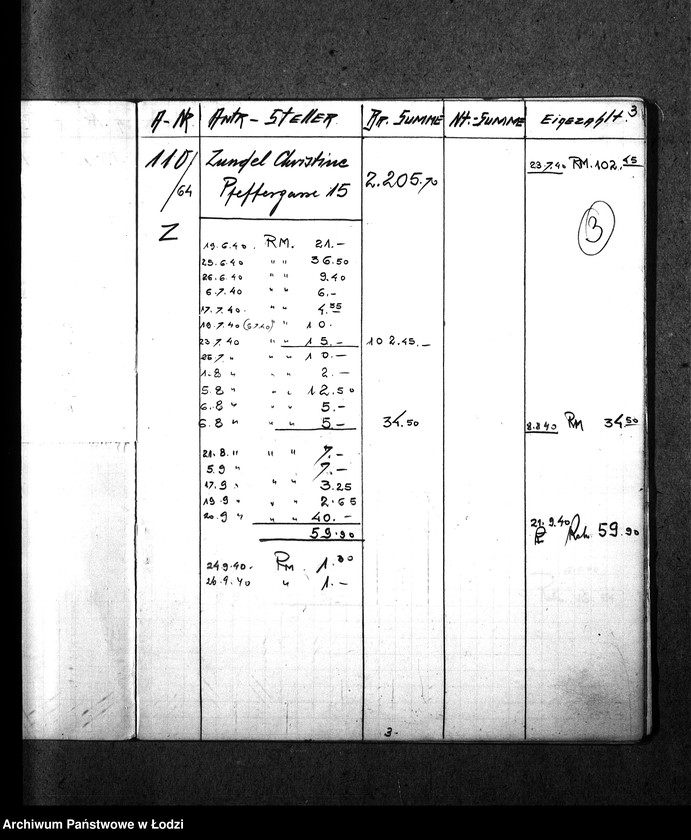 3
A-Nr Antr-Steller Br. Summe Nt-Summe Eigezahlt
110/64 Zundel Christine 23.7.40 RM. 102.45
Pfeffergasse 15 2.205.70
Z 3
19.6.40. RM. 21.-
25.6.40 " " 36.50
26.6.40 " " 9.40
6.7.40 " " 6.-
17.7.40. " " 4.55
19.7.40 " 10.
23.7.40 " " 15.- 102.45.-
25.7. " " " 10.-
1.8 " " " 2.-
5.8 " " " 12.50
6.8 " " " 5.-
6.8 " " " 5.- 34.50 8.8.40 RM 34.50
21.8. " " " 7.-
5.9 " 7.-
17.9 " " " 3.25
19.9 " " " 2.65
20.9 " " " 40.- 21.9.40
59.90 59.90
24.9.40. RM 1.30
26.9.40 " 1.-
3-
Archiwum Państwowe w Łodzi